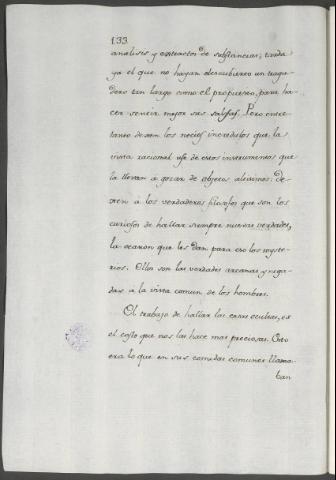 133
analises y extractos de substancias; tanda
ya el que no hayan descubierto un traga-
dero tan largo como el propuesto, para ha-
cer sentir mejor sus salsas. Pero entre
tanto dexen los necios incredulos que la
vista racional use de estos instrumentos que
la llevan á gozar de objetos altísimos: de-
xen á los verdaderos filosofos que son los
curiosos de hallar siempre nuevas verdades,
la ocasion que les dan para eso los myste-
rios. Ellos son las verdades arcanas y nega-
das á la vista comun de los hombres.
El trabajo de hallar las cosas ocultas, es
el costo que nos las hace mas preciosas. Esto
era lo que en sus comidas comunes llama-
ban